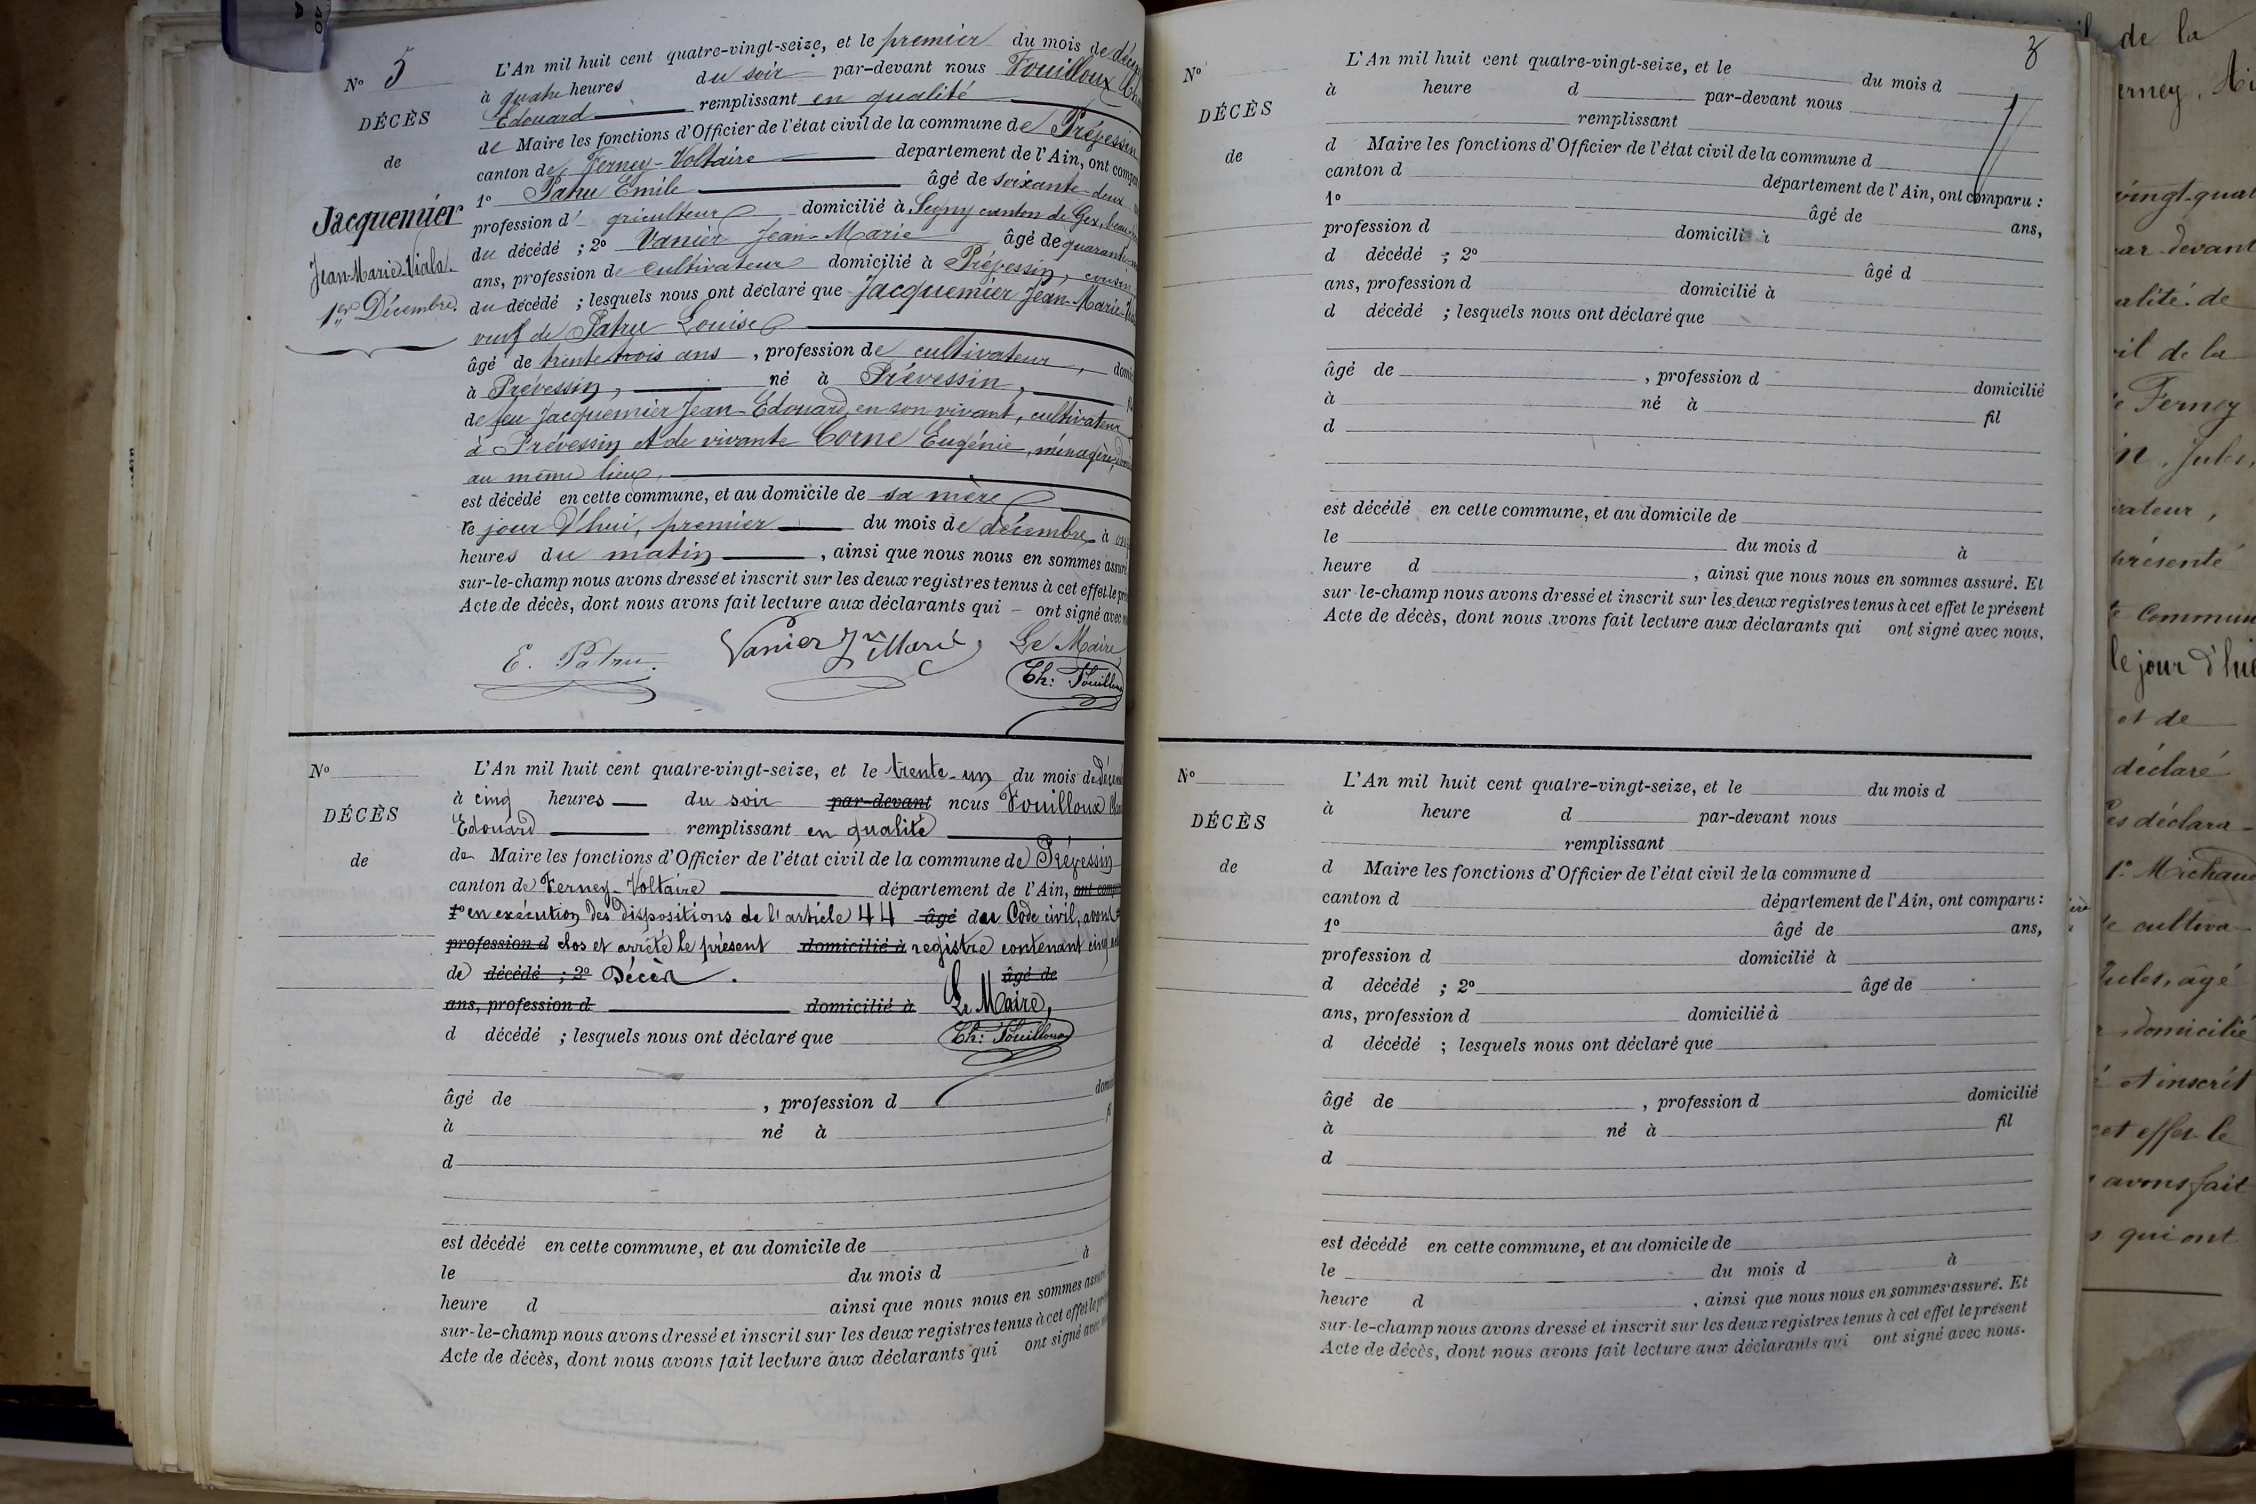 N° 5
DÉCÈS
de
Jacquemier
Jean-Marie Viala.
1er Décembre.
L'An mil huit cent quatre-vingt-seize, et le premier du mois de
à quatre heures du soir par-devant nous Fouilloux
Edouard remplissant en qualité
de Maire les fonctions d'Officier de l'état civil de la commune de Prévessin
canton de Ferney-Voltaire département de l'Ain, ont
1° Patru Emile âgé de soixante-deux
profession d' griculteur domicilié à Segny canton de Gex,
du décédé ; 2° Vanier Jean-Marie âgé de
ans, profession de cultivateur domicilié à Prévessin, cousin
du décédé ; lesquels nous ont déclaré que Jacquemier Jean-Marie
veuf de Patru Louise
âgé de trente trois ans , profession de cultivateur,
à Prévessin, né à Prévessin,
de feu Jacquemier Jean-Edouard, en son vivant, cultivateur
à Prévessin et de vivante Corne Eugénie, ménagère,
au même lieu,
est décédé en cette commune, et au domicile de sa mère
ce jour d'hui, premier du mois de décembre à
heures du matin , ainsi que nous nous en sommes
sur-le-champ nous avons dressé et inscrit sur les deux registres tenus à cet effet le
Acte de décès, dont nous avons fait lecture aux déclarants qui - ont signé avec
E. Patru. Vanier Jn Marie Le Maire,
Ch: Fouilloux
N°
DÉCÈS
de
L'An mil huit cent quatre-vingt-seize, et le trente-un du mois de
à cinq heures du soir par-devant nous Fouilloux
Edouard remplissant en qualité
de Maire les fonctions d'Officier de l'état civil de la commune de Prévessin
canton de Ferney-Voltaire département de l'Ain, ont
1° en exécution des dispositions de l'article 44 âgé du Code civil, avons
profession d clos et arrêté le présent domicilié à registre contenant cinq
de décédé ; 2° Décès. âgé de
ans, profession d domicilié à Le Maire,
d décédé ; lesquels nous ont déclaré que Ch: Fouilloux
âgé de , profession d
à né à
d
est décédé en cette commune, et au domicile de
le du mois d à
heure d ainsi que nous nous en sommes
sur-le-champ nous avons dressé et inscrit sur les deux registres tenus à cet effet le
Acte de décès, dont nous avons fait lecture aux déclarants qui ont signé avec
N°
DÉCÈS
de
L'An mil huit cent quatre-vingt-seize, et le du mois d
à heure d par-devant nous
remplissant
d Maire les fonctions d'Officier de l'état civil de la commune d
canton d département de l'Ain, ont comparu :
1° âgé de ans,
profession d domicilié à
d décédé ; 2° âgé d
ans, profession d domicilié à
d décédé ; lesquels nous ont déclaré que
âgé de , profession d domicilié
à né à fil
d
est décédé en cette commune, et au domicile de
le du mois d à
heure d , ainsi que nous nous en sommes assuré. Et
sur-le-champ nous avons dressé et inscrit sur les deux registres tenus à cet effet le présent
Acte de décès, dont nous avons fait lecture aux déclarants qui ont signé avec nous.
N°
DÉCÈS
de
L'An mil huit cent quatre-vingt-seize, et le du mois d
à heure d par-devant nous
remplissant
d Maire les fonctions d'Officier de l'état civil de la commune d
canton d département de l'Ain, ont comparu :
1° âgé de ans,
profession d domicilié à
d décédé ; 2° âgé de
ans, profession d domicilié à
d décédé ; lesquels nous ont déclaré que
âgé de , profession d domicilié
à né à fil
d
est décédé en cette commune, et au domicile de
le du mois d à
heure d , ainsi que nous nous en sommes assuré. Et
sur-le-champ nous avons dressé et inscrit sur les deux registres tenus à cet effet le présent
Acte de décès, dont nous avons fait lecture aux déclarants qui ont signé avec nous.
de la
devant
de
de la
Ferney
présenté
le jour d'hui
et de
déclaré
1° Michaud
Jules, âgé
domicilié
et inscrit
cet effet le
avons fait
qui ont